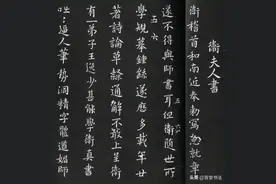 衛夫人書
衛稽首和南近奉勅寫急就章
遂不得與師書耳但衛隨世所
五六
學規摹鍾繇遂歷多載年廿
著詩論草隸通解不敢上呈衛
有一弟子王逸少甚能學衛真書
咄逼人筆勢洞精字體遒媚師